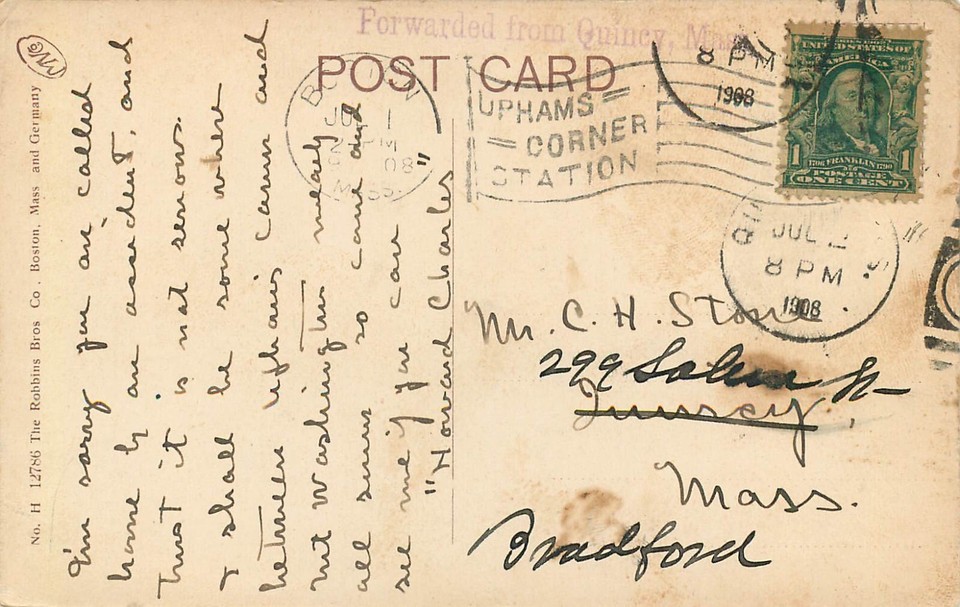 Forwarded from Quincy, Mass
POST CARD
BOSTON
JUL 1
08
MASS.
UPHAMS
CORNER
STATION
8 PM
1908
SERIES 1902
UNITED STATES OF
AMERICA
1 1706 FRANKLIN 1790 1
POSTAGE
ONE CENT
JUL
8 PM
1908
Mr. C. H. Stone
299 Salem St
Quincy,
Mass.
Bradford
I'm sorry you are called
home by an accident, and
trust it is not serious.
I shall be some where
between Uphams Corner and
Mt Washington nearly
all summer so come and
see me if you can
"Howard Charles"
No. H 12786 The Robbins Bros Co. Boston, Mass and Germany